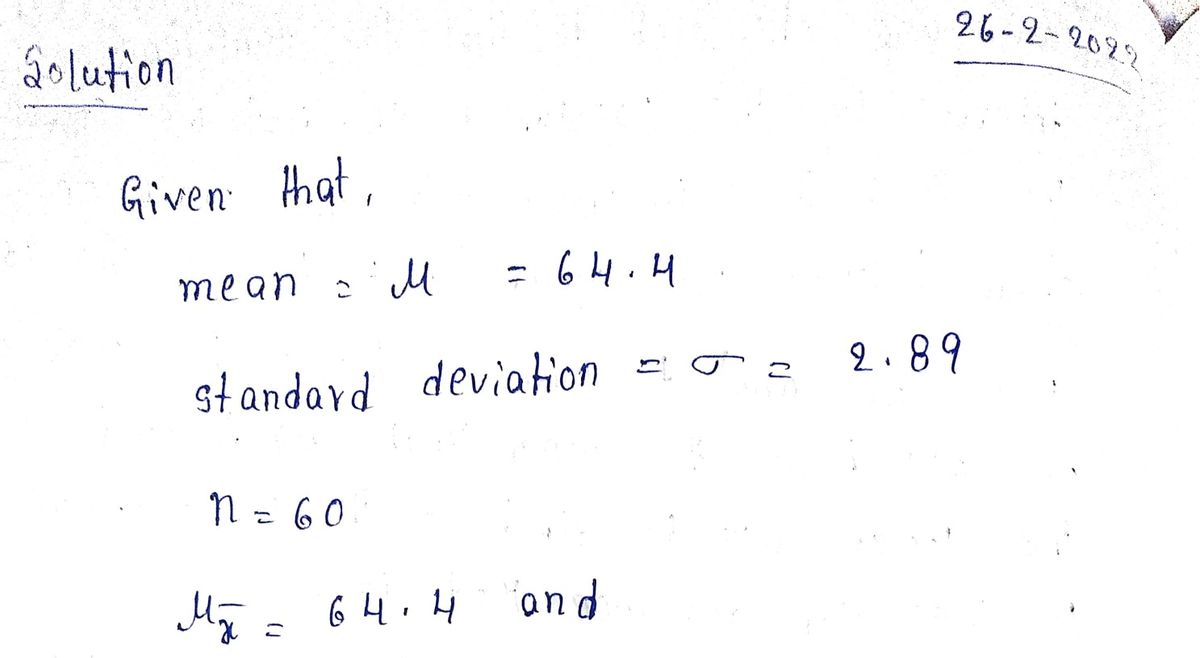 26-2-2022
Solution
Given that,
mean = μ = 64.4
standard deviation = σ = 2.89
n = 60
μx̄ = 64.4 and